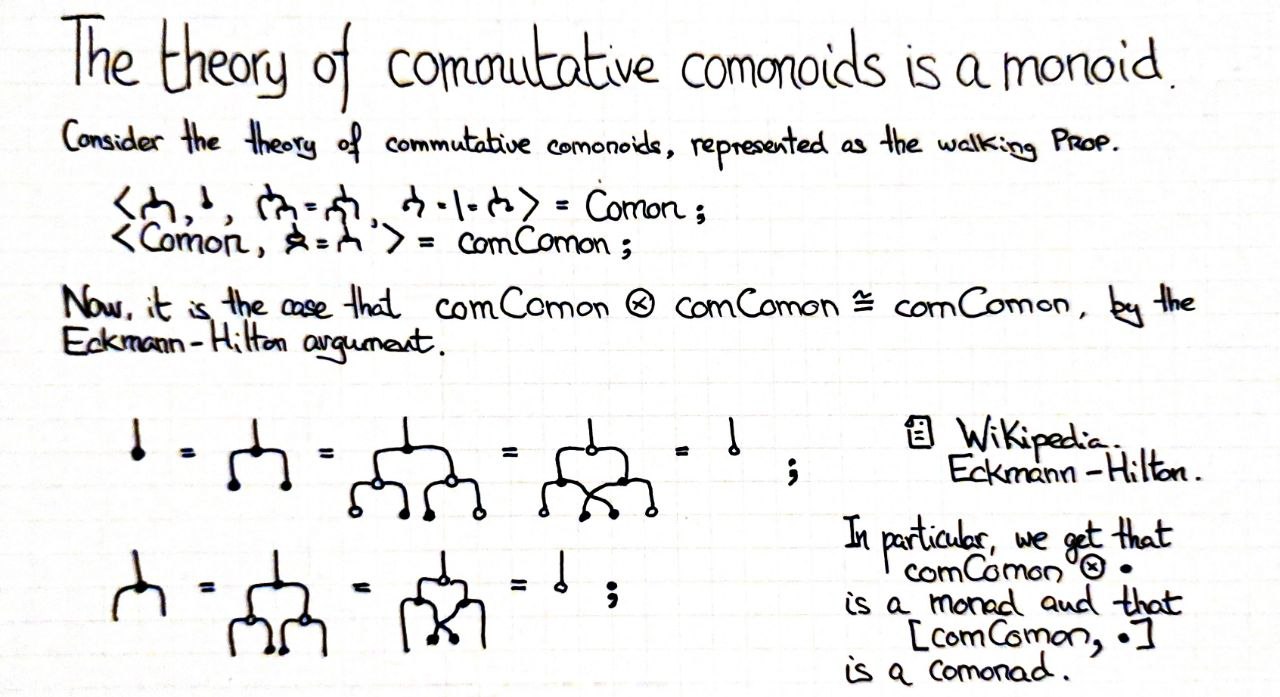 The theory of commutative comonoids is a monoid.
Consider the theory of commutative comonoids, represented as the walking PROP.
= Comon ;
<Comon, > = comComon ;
Now, it is the case that comComon ⊗ comComon ≅ comComon, by the
Eckmann-Hilton argument.
= = = = ;
Wikipedia.
Eckmann-Hilton.
= = = ;
In particular, we get that
comComon ⊗ •
is a monad and that
[comComon, •]
is a comonad.